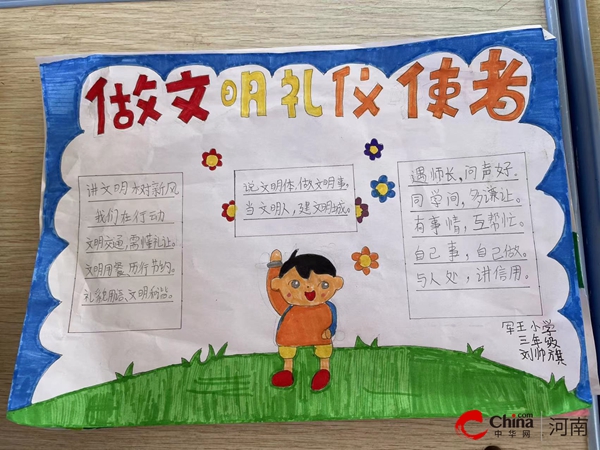 做文明礼仪使者
讲文明 树新风
我们在行动
文明交通,需懂礼让。
文明用餐,历行节约。
礼貌用语、文明和谐。
说文明体,做文明事,
当文明人,建文明城。
遇师长,问声好.
同学间,多谦让。
有事情,互帮忙。
自己事,自己做。
与人处,讲信用。
军王小学
三年级
刘帅旗
China.com
中华网
河南